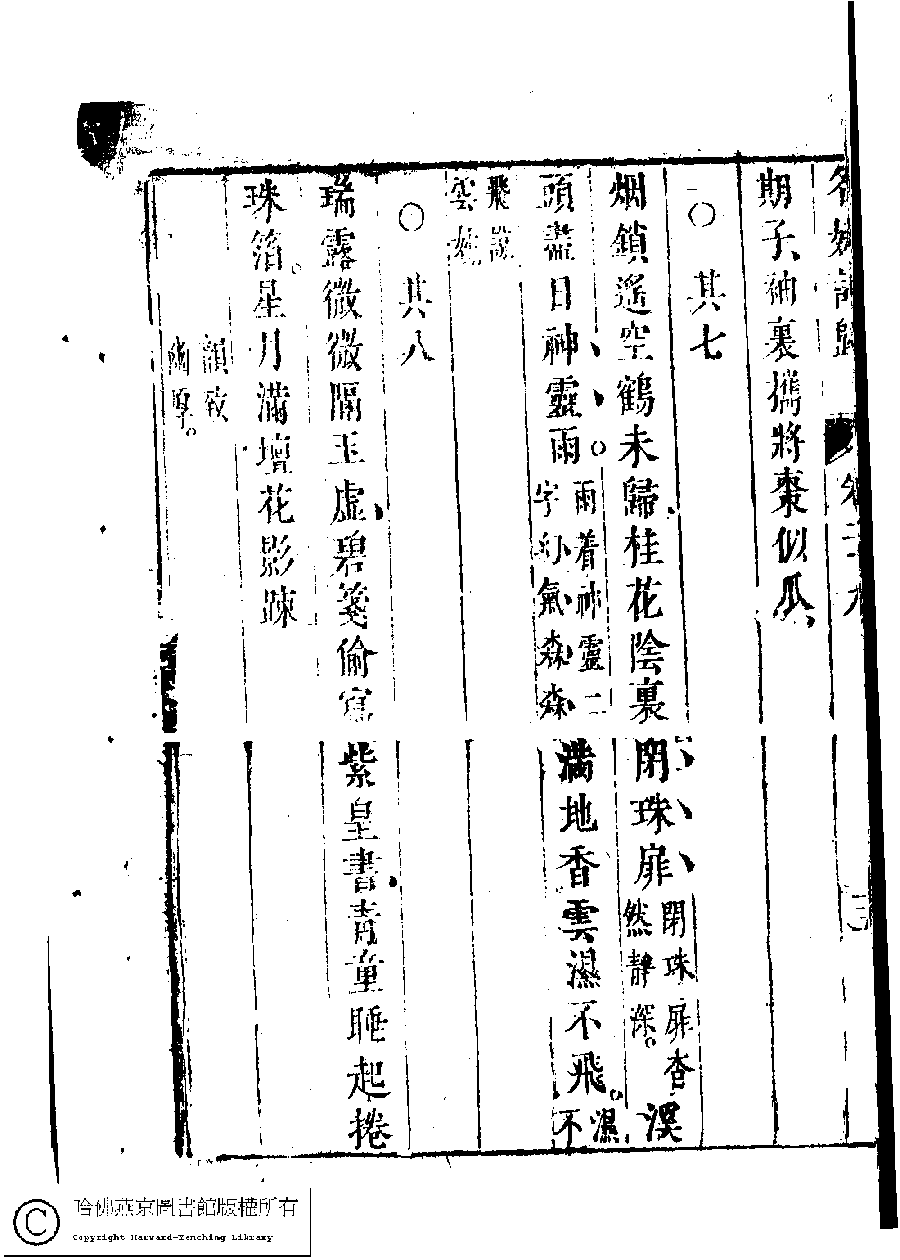 名媛詩歸 卷二十九 三
期子袖裏攜將棗似瓜
○ 其七
烟鎖遥空鶴未歸桂花陰裏閉珠扉閉珠扉杳然静深。溪
頭盡日神靈雨雨着神靈二字幻氣森森滿地香雲濕不飛濕不
飛説雲妙
○ 其八
瑞露微微隔玉虚碧箋偷寫紫皇書青童睡起捲
珠箔星月滿壇花影踈
韻致幽厚。
哈佛燕京圖書館版權所有
Copyright Harvard-Yenching Library